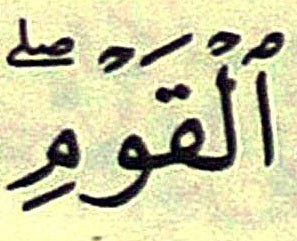 ٱلْقَوْمِۖ